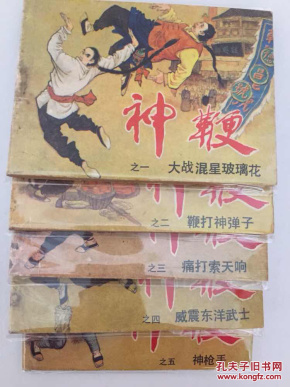 神鞭
之一 大战混星玻璃花
神鞭
之二 鞭打神弹子
神鞭
之三 痛打索天响
神鞭
之四 威震东洋武士
神鞭
之五 神枪手